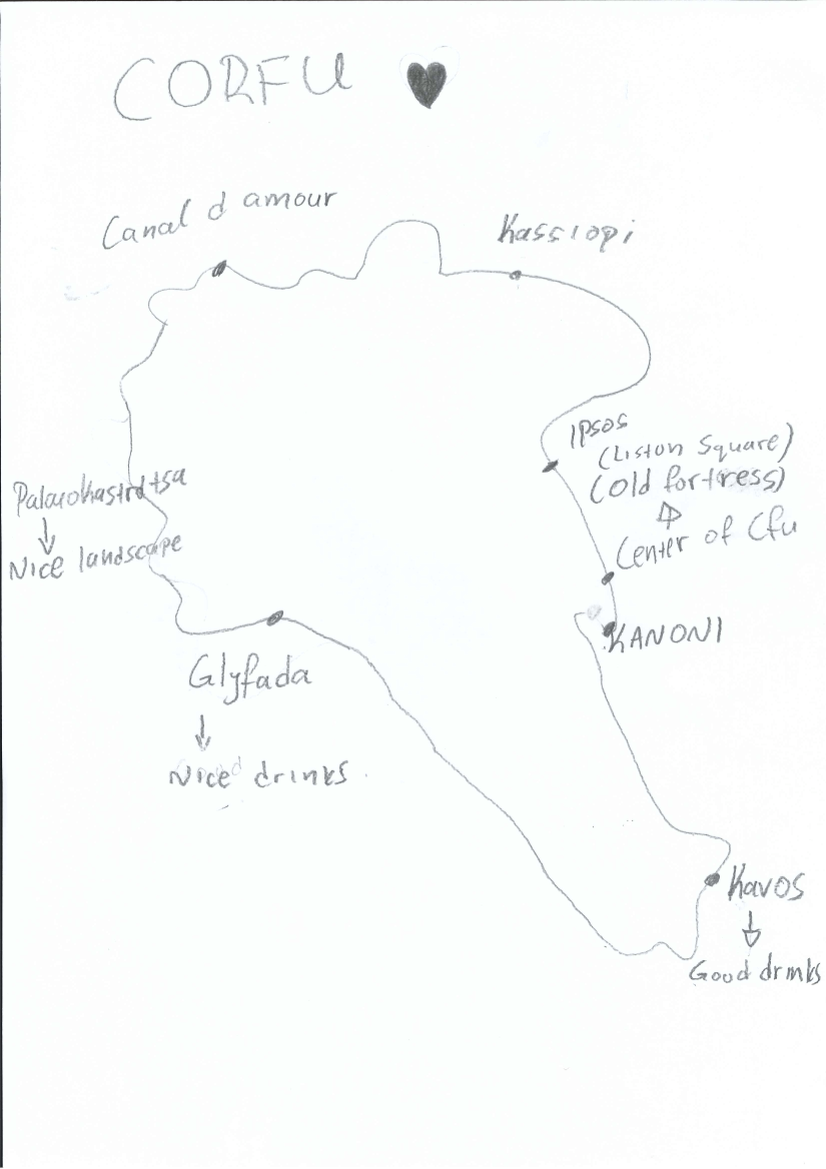 CORFU
Canal d amour
Kassiopi
Ipsos
(Liston Square)
(Old fortress)
Center of Cfu
KANONI
Palaiokastritsa
Nice landscape
Glyfada
Nice drinks
Kavos
Good drinks